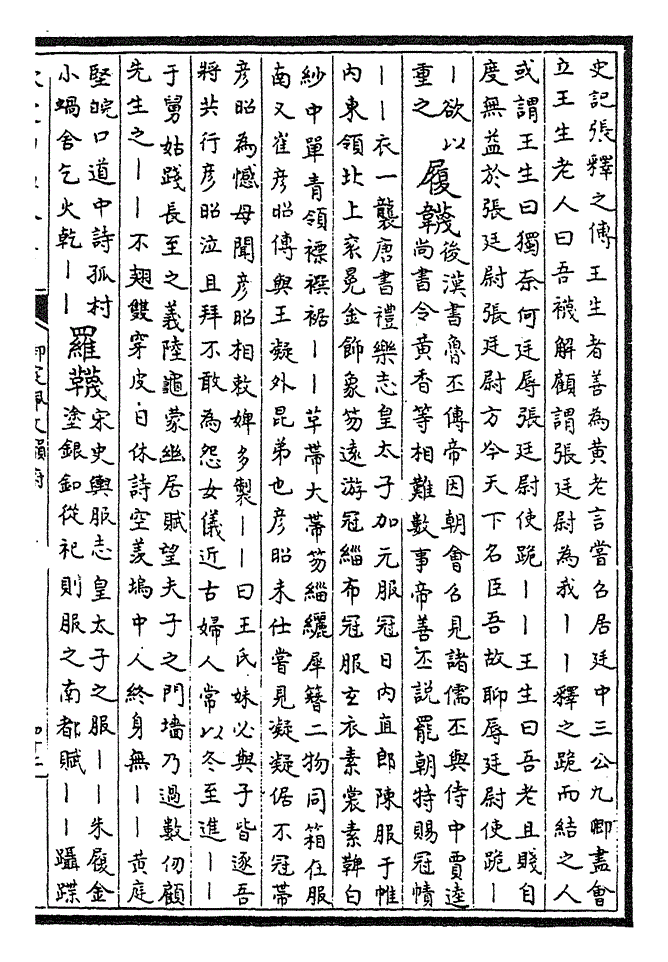 史記張釋之傳 王生者善為黃老言嘗召居廷中三公九卿盡會
立王生老人曰吾襪解顧謂張廷尉為我丨丨釋之跪而結之人
或謂王生曰獨奈何廷辱張廷尉使跪丨丨王生曰吾老且賤自
度無益於張廷尉張廷尉方今天下名臣吾故聊辱廷尉使跪丨
丨欲以
重之
履韈
後漢書魯丕傳帝因朝會召見諸儒丕與侍中賈逵
尚書令黃香等相難數事帝善丕説罷朝特賜冠幘
丨丨衣一襲唐書禮樂志皇太子加元服冠日内直郎陳服于帷
内東領北上衮冕金飾象笏遠游冠緇布冠服玄衣素裳素韠白
紗中單青領褾襈裾丨丨革帶大帶笏緇纚犀簪二物同箱在服
南又崔彦昭傳與王凝外昆弟也彦昭未仕嘗見凝凝倨不冠帶
彦昭為憾母聞彦昭相敕婢多製丨丨曰王氏妹必與子皆逐吾
將共行彦昭泣且拜不敢為怨女儀近古婦人常以冬至進丨丨
于舅姑踐長至之義陸龜蒙幽居賦望夫子之門墻乃過數仞顧
先生之丨丨不翅雙穿皮日休詩空羨塢中人終身無丨丨黃庭
堅皖口道中詩孤村
小蝸舍乞火乾丨丨
羅韈
宋史輿服志皇太子之服丨丨朱履金
塗銀釦從祀則服之南都賦丨丨躡蹀